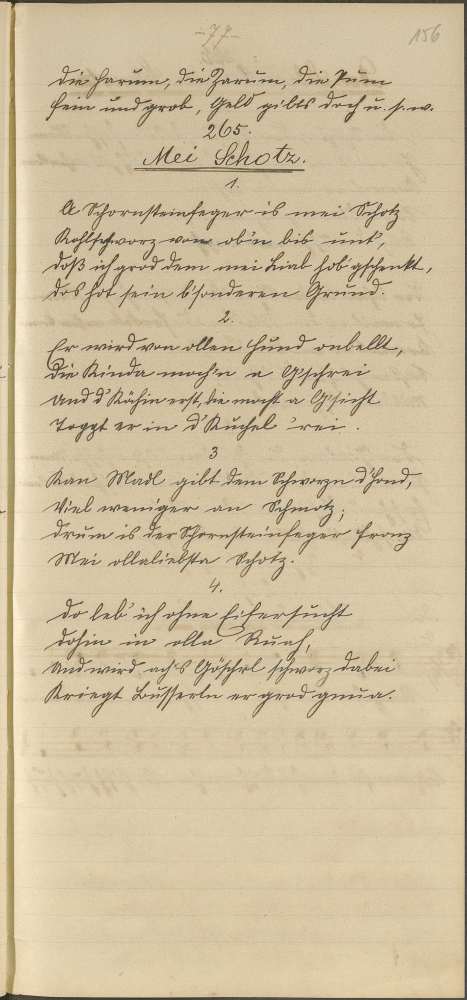 -77-
156
die Harum, die Zarum, die Pum
fein und grob, Geld gilts doch u. s. w.
265.
Mei Schotz.
1.
A Schornsteinfeger is mei Schotz
Kohlschworz von ob'n bis unt',
doß ich grod dem mei Liab hob gschenkt,
dos hot sein b'sonderen Grund.
2.
Er wird von ollen Hund onbellt,
Die Kinda moch'n a G'schrei
und d' Köchin erst, die mocht a G'sicht
Toppt er in d' Kuchel 'rei.
3
Kan Madl gibt dem Schworzn d'Hond,
Viel weniger an Schmotz;
drum is der Schornsteinfeger Franz
Mei ollaliebsta Schotz.
4.
do leb' ich ohne Eifersucht
dohin in olla Ruah,
und wird ach's Göscherl schworz dabei
Kriegt Busserln er grod gnua.